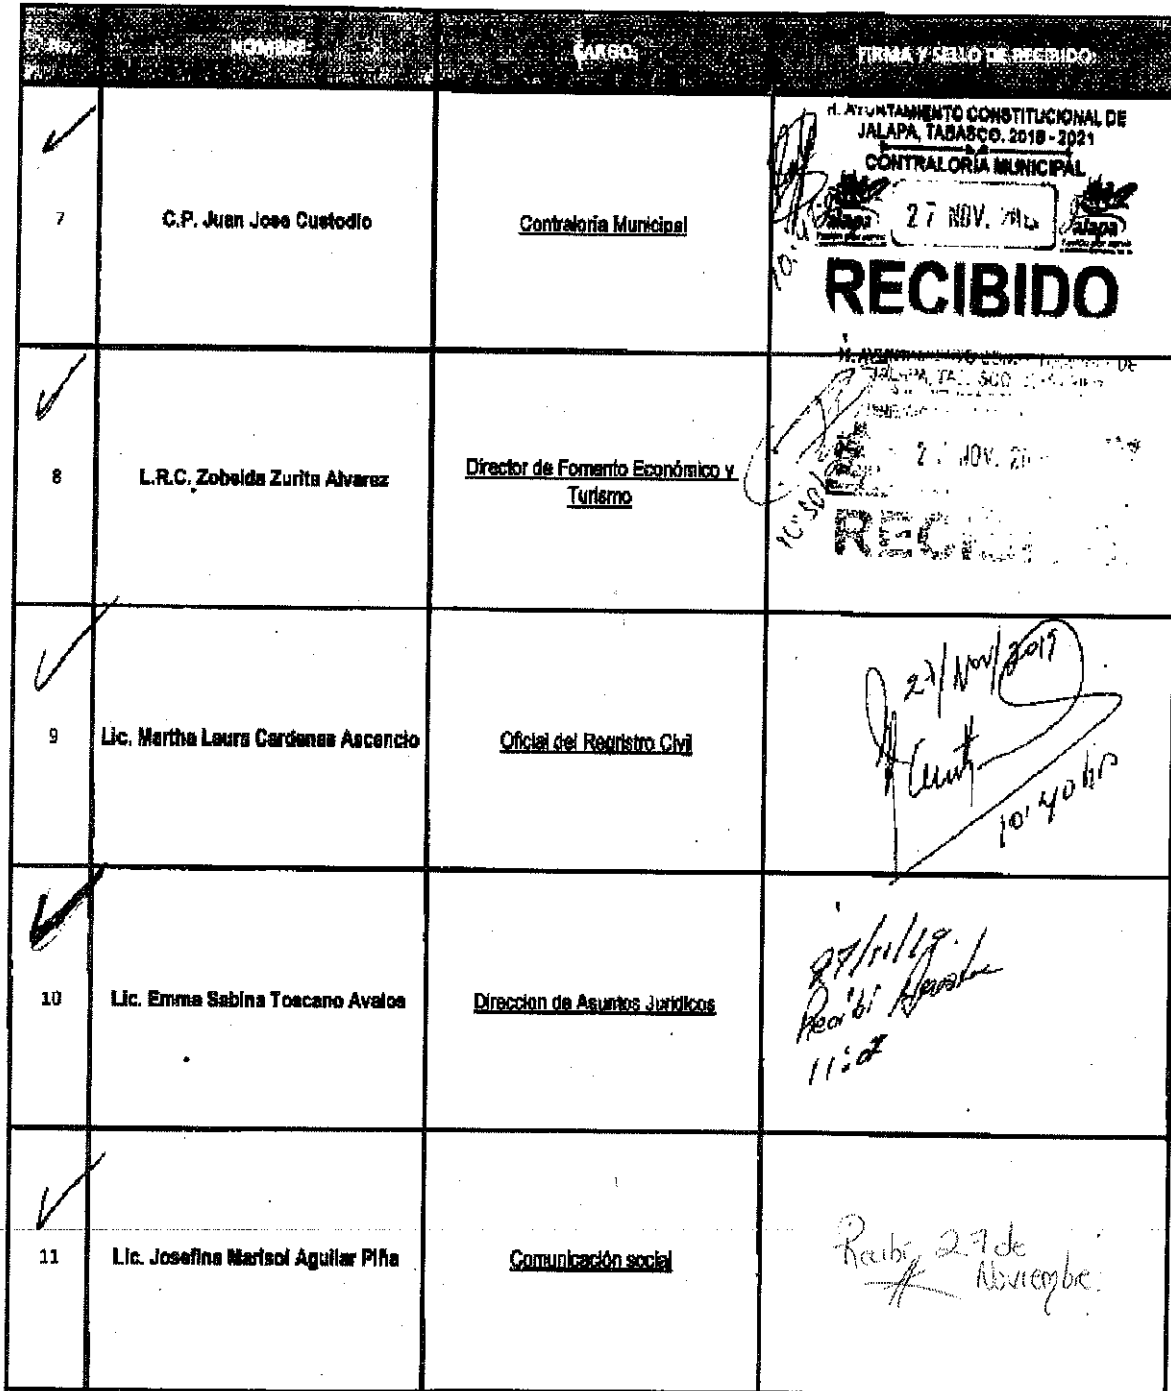 No. NOMBRE: CARGO: FIRMA Y SELLO DE RECIBIDO:
7 C.P. Juan Jose Custodio Contraloria Municipal
H. AYUNTAMIENTO CONSTITUCIONAL DE
JALAPA, TABASCO. 2018 - 2021
CONTRALORÍA MUNICIPAL
27 NOV.
RECIBIDO
8 L.R.C. Zobeida Zurita Alvarez Director de Fomento Económico y
Turismo
NOV.
10:30
9 Lic. Martha Laura Cardenas Ascencio Oficial del Regristro Civil
27/Nov/2019
10:40 hrs
10 Lic. Emma Sabina Toscano Avalos Direccion de Asuntos Juridicos
27/11/19.
Recibi
11:07
11 Lic. Josefina Marisol Aguilar Piña Comunicación social
Recibi 27 de
Noviembre.